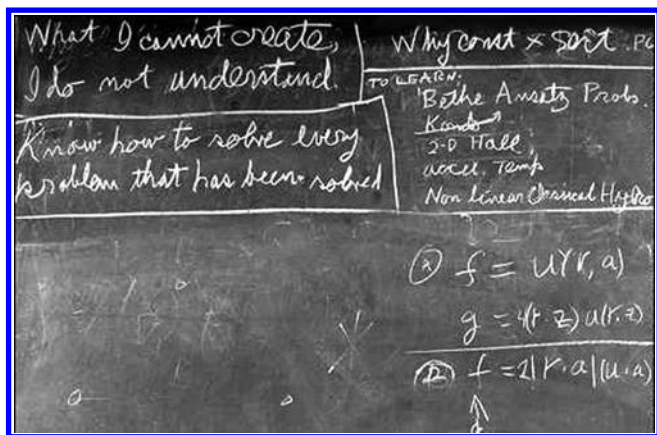 What I cannot create,
I do not understand.
Know how to solve every
problem that has been solved
Why const × sort . PO
TO LEARN:
Bethe Ansatz Probs.
Kondo
2-D Hall
accel. Temp
Non Linear Classical Hydro
Ⓐ f = u(r, a)
g = 4(r·z) u(r, z)
Ⓑ f = 2|r·a|(u·a)